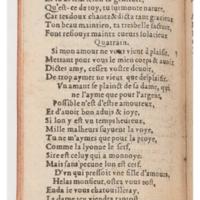 Qu'est-ce de toy, tu surmonte nature,
Car tes doux chants & dicts tant gracieux
Ton beau maintien, ta tresbelle facture,
Font resiouyr maints cueurs solacieux
Quatrain.
Si mon amour ne vous vient à plaisir,
Mettant pour vous le mien corps & auoir
Dictes amy, cessez vostre deuoir,
De trop aymer ne vieux que desplaisir.
Vn amant se plainct de sa dame, qui
ne l'ayme que pour l'argent,
Possible n'est d'estre amoureux,
Et d'auoir bon aduis & ioye,
Si lon y est vn temps heureux,
Mille malheurs suyuent la voye,
Tu ne m'aymes que pour la proye,
Comme la lyonne le serf,
Sire est celuy qui a monnoye
Mais sans pecune lon est cerf.
D'vn qui pressoit vne fille d'amour,
Helas monsieur, ostez vous sus,
Enda ie vous chatouilleray,
La dame tes viendra tantost